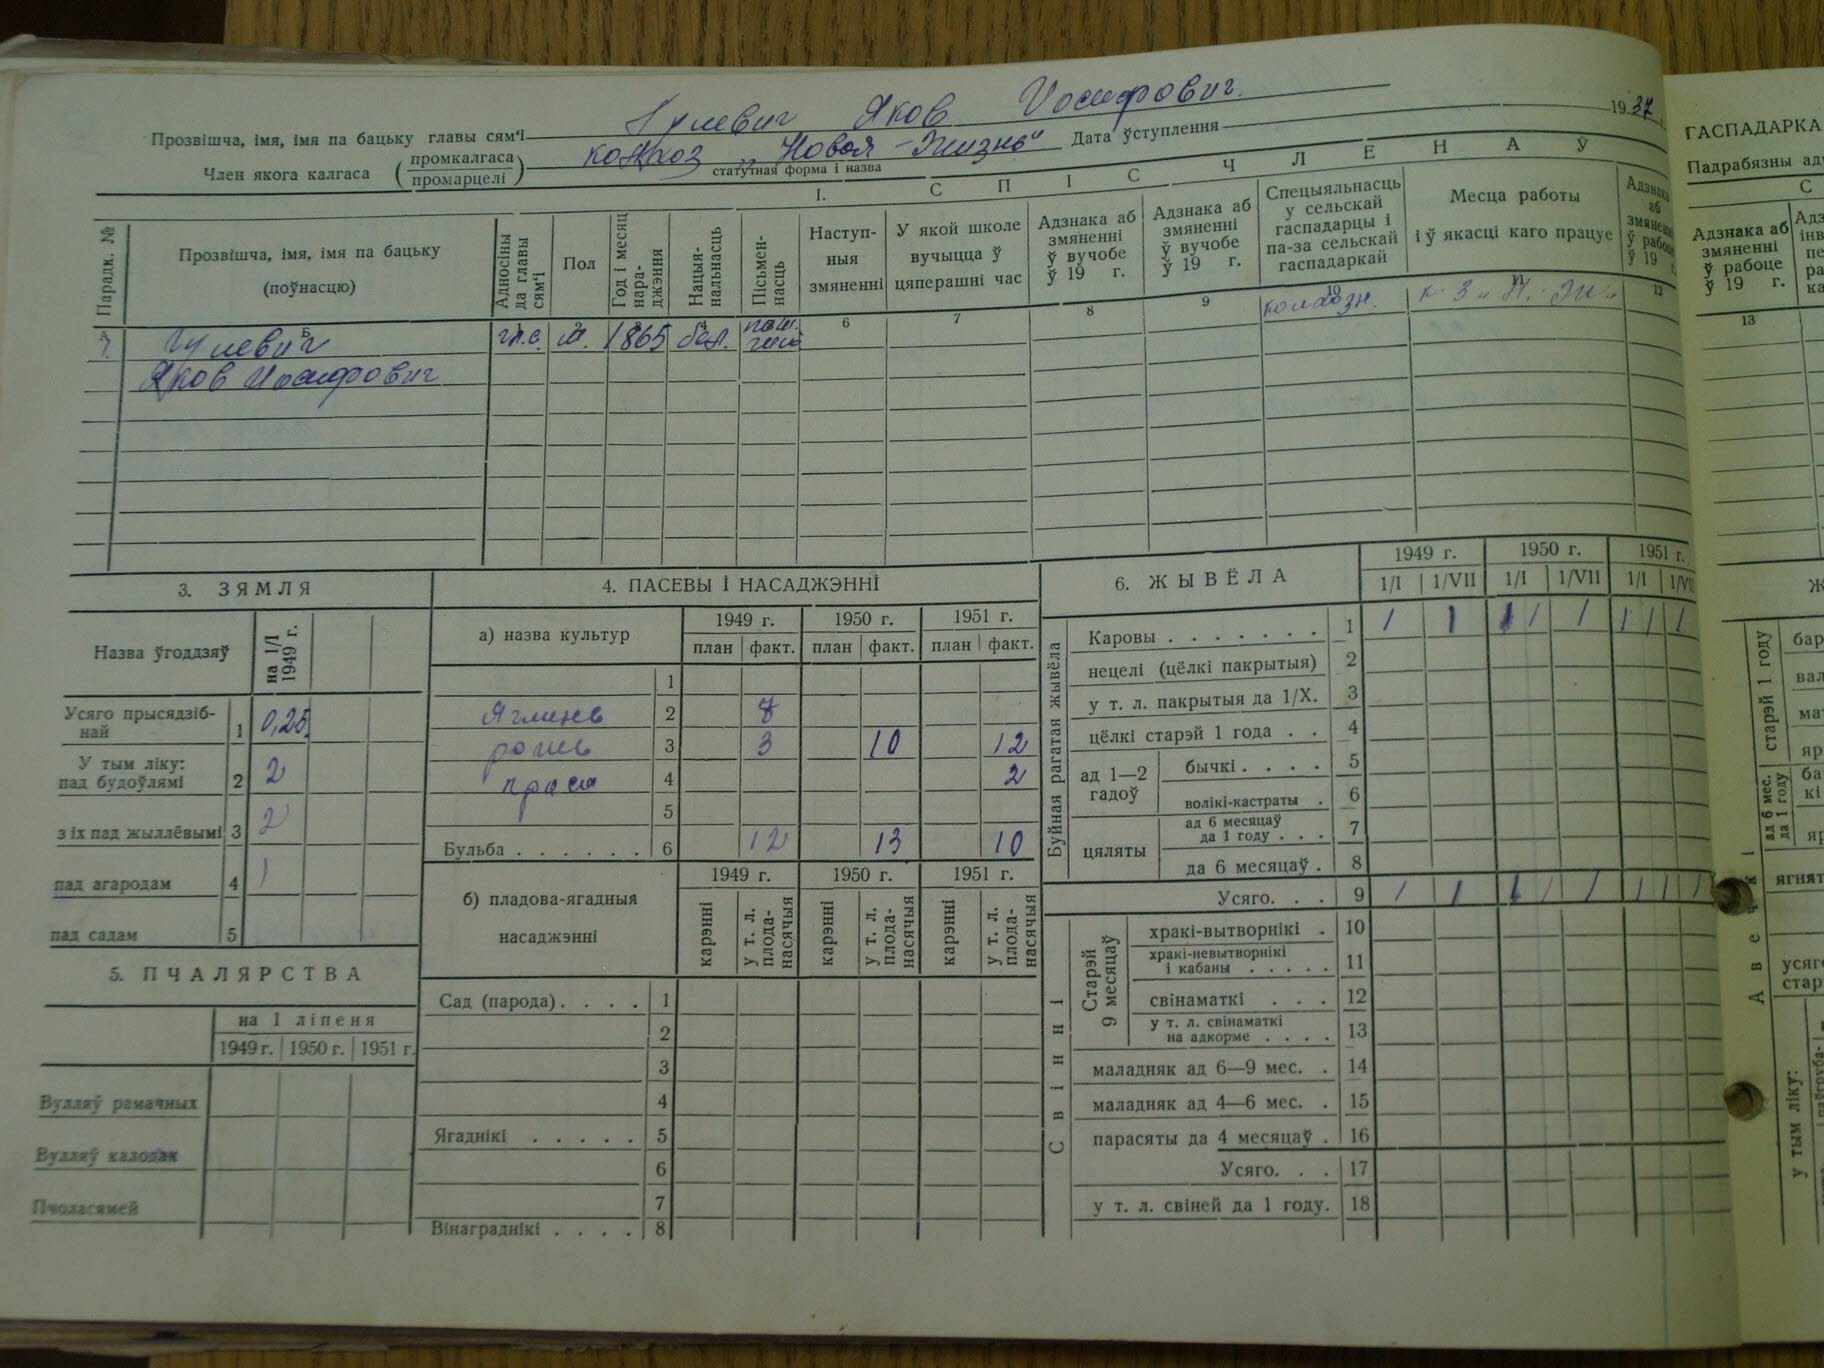 Прозвішча, імя, імя па бацьку главы сям'і Гулевич Яков Иосифович.
Член якога калгаса (промкалгаса / промарцелі) колхоз „Новая Жизнь" Дата ўступлення 1937 г.
статутная форма і назва
1. СПІС ЧЛЕНАЎ
Парадк. №
Прозвішча, імя, імя па бацьку (поўнасцю)
Адносіны да главы сям'і
Пол
Год і месяц нараджэння
Нацыянальнасць
Пісьменнасць
Наступныя змяненні
У якой школе вучыцца ў цяперашні час
Адзнака аб змяненні ў вучобе ў 19 г.
Адзнака аб змяненні ў вучобе ў 19 г.
Спецыяльнасць у сельскай гаспадарцы і па-за сельскай гаспадаркай
Месца работы і ў якасці каго працуе
Адзнака аб змяненні ў рабоце ў 19 г.
Б 6 7 8 9 10 12
1. Гулевич гл.с. м. 1865 бел. колхозн.
Яков Иосифович
3. ЗЯМЛЯ
Назва ўгоддзяў на 1/I 1949 г.
Усяго прысядзібнай 1 0,25
У тым ліку: пад будоўлямі 2 2
з іх пад жыллёвымі 3 2
пад агародам 4 1
пад садам 5
5. ПЧАЛЯРСТВА
на 1 ліпеня
1949 г. 1950 г. 1951 г.
Вулляў рамачных
Вулляў калодак
Пчоласямей
4. ПАСЕВЫ І НАСАДЖЭННІ
а) назва культур 1949 г. 1950 г. 1951 г.
план факт. план факт. план факт.
1
Ячмень 2
3 3 10 12
проса 4 2
5
Бульба . . . . . . 6 12 13 10
б) пладова-ягадныя насаджэнні 1949 г. 1950 г. 1951 г.
карэнні у т. л. пладанасячыя карэнні у т. л. пладанасячыя карэнні у т. л. пладанасячыя
Сад (парода) . . . . 1
2
3
4
Ягаднікі . . . . . 5
6
7
Вінаграднікі . . . . 8
6. ЖЫВЁЛА 1949 г. 1950 г. 1951 г.
1/I 1/VII 1/I 1/VII 1/I 1/VII
Буйная рагатая жывёла
Каровы . . . . . . . 1 1 1 1 1 1 1 1 1
нецелі (цёлкі пакрытыя) 2
у т. л. пакрытыя да 1/X. 3
цёлкі старэй 1 года . . 4
ад 1—2 гадоў бычкі . . . . 5
волікі-кастраты . 6
цяляты ад 6 месяцаў да 1 году . . . 7
да 6 месяцаў . 8
Усяго. . . 9 1 1 1 1 1 1 1 1
Свінні
Старэй 9 месяцаў
хракі-вытворнікі . 10
хракі-невытворнікі і кабаны . . . . . 11
свінаматкі . . . 12
у т. л. свінаматкі на адкорме . . . . 13
маладняк ад 6—9 мес. . 14
маладняк ад 4—6 мес. . 15
парасяты да 4 месяцаў . 16
Усяго. . . 17
у т. л. свіней да 1 году. 18
ГАСПАДАРКА
Падрабязны ад
С
Адзнака аб змяненні ў рабоце ў 19 г.
13
старэй 1 году
ад 6 мес. да 1 году
Авечкі
ягнят
усяго
у тым ліку: